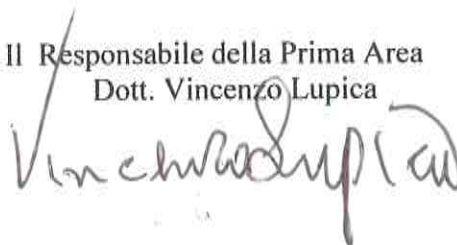 Il Responsabile della Prima Area
Dott. Vincenzo Lupica
Vincenzo Lupica